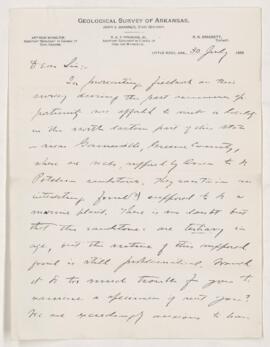 GEOLOGICAL SURVEY OF ARKANSAS.
JOHN C. BRANNER, STATE GEOLOGIST.
ARTHUR WINSLOW,
ASSISTANT GEOLOGIST IN CHARGE OF
COAL REGIONS.
R. N. BRACKETT,
CHEMIST.
LITTLE ROCK, ARK., 30 July 1888
Dear Sir:
In prosecuting fieldwork on this
survey during the past summer op-
portunity was afforded to visit a locality
in the north eastern part of this state
near Gainesville, Greene County,
where are rocks, supposed by Owen to be
Potsdam sandstone. They contain an
interesting fossil supposed to be a
marine plant. There is no doubt but
that the sandstones are tertiary in
age, but the nature of this supposed
fossil is still problematical. Would
it be too much trouble for you to
examine a specimen if sent you?
We are exceedingly anxious to have